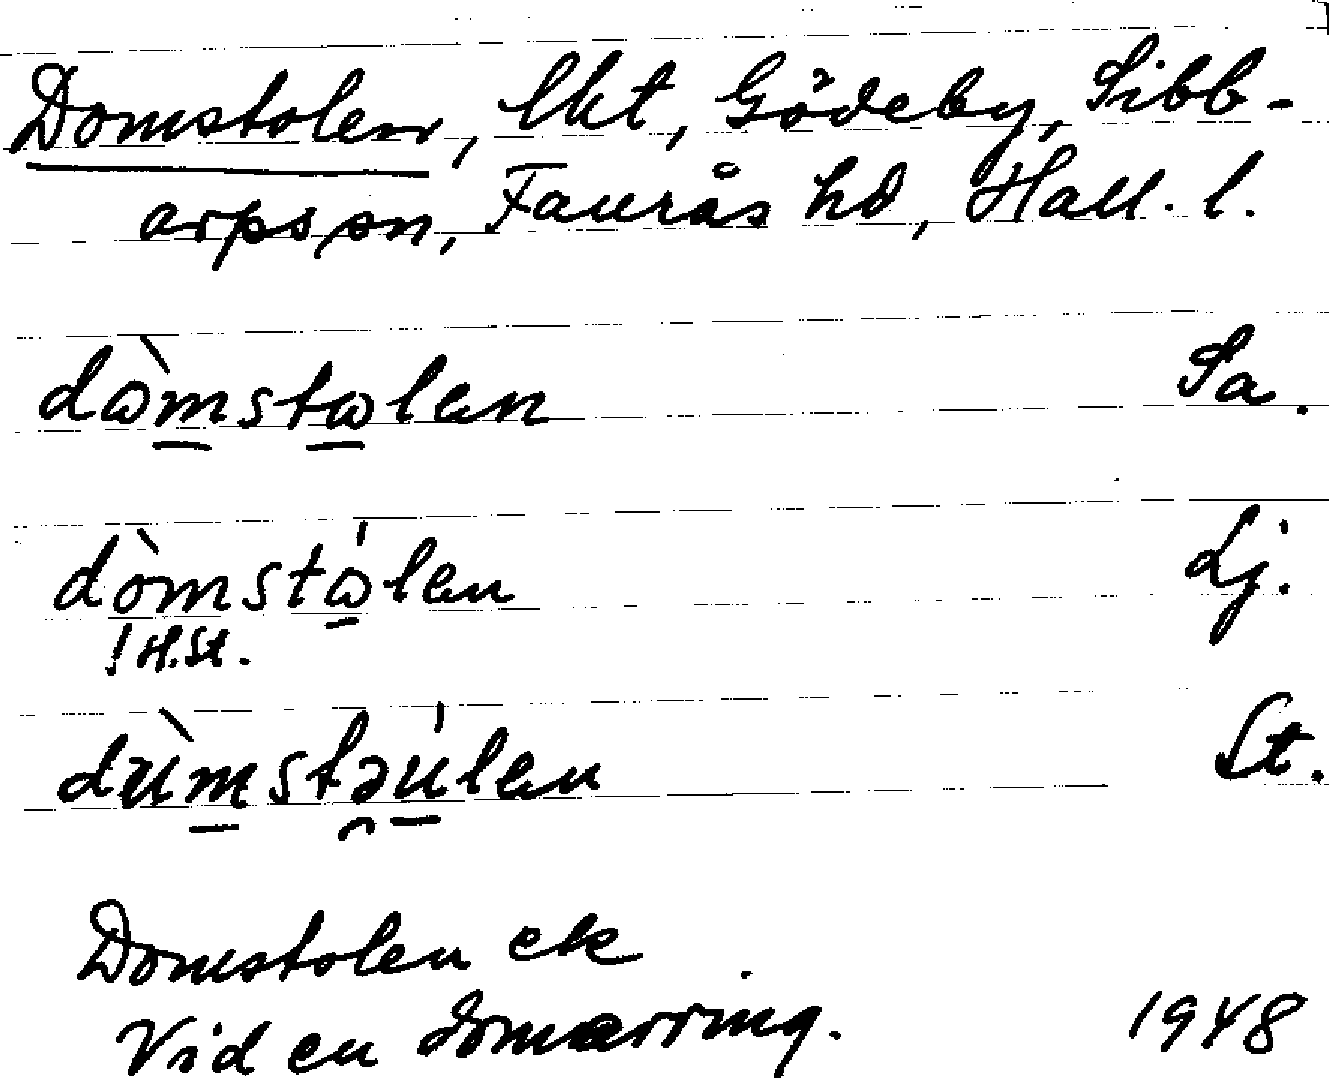 Domstolen, lht, Gödeby, Sibb-
arps sn, Faurås hd, Hall. l.
dɷ̀mstɷlən Sa.
dòmstɷ́lən Lj.
! H.St.
dùmstəúlən St.
Domstolen ek
Vid en domarring. 1948